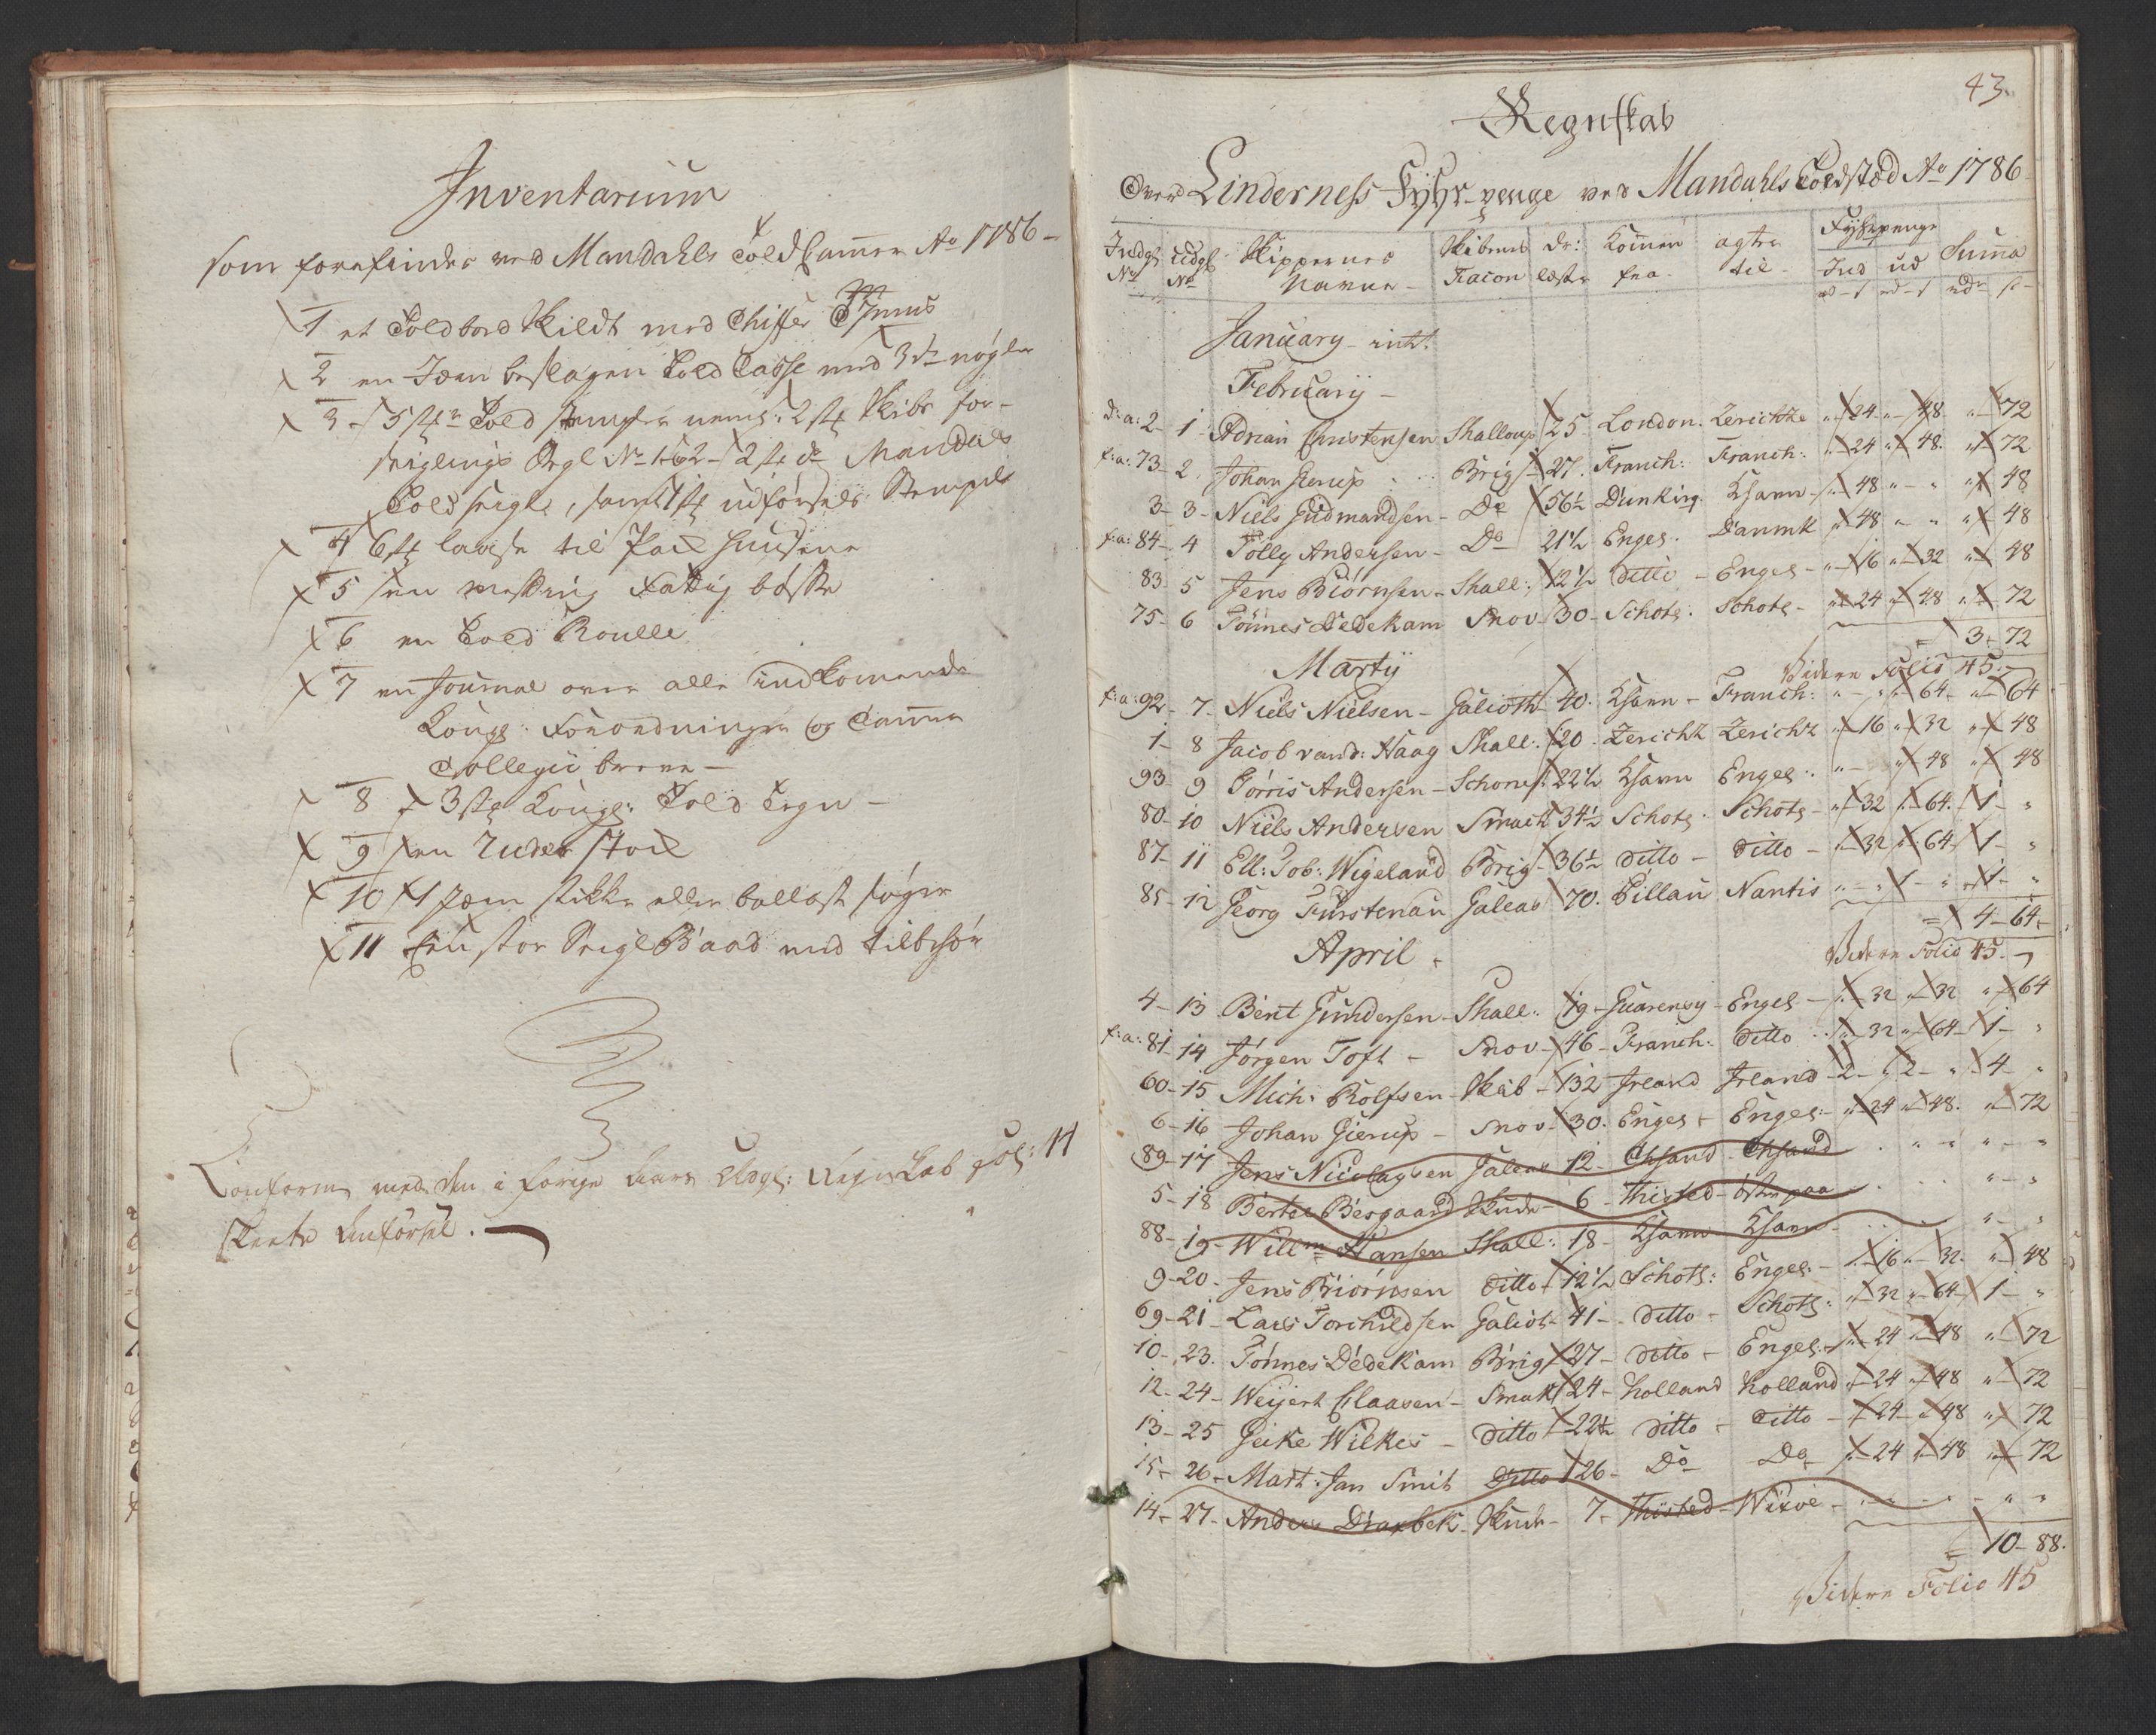 Inventarium
som forefindes ved Mandahls Told Cammer Ao 1786
1 et Toldbord Skildt med Chiffer
2 en Jærn beslagen Told Casse med 3de nøgler
3 5 stk Told stempler nemlig: 2 stk Skibs for-
seiglings Segl No 162 - 2 stk do Mandals
Told seigle, samt 1 stk udførsels Stempel
4 6 stk til Pak
5 en messing Fattig bøsse
6 en Told Roulle
7 en Journal over alle indkomende
Kongl: Forordninger og Cammer
Collegii breve
8 3 stk Kongl: Told
9 en stok
10 1 Jærn stikke eller ballast søger
11 En stor Seigl Baad med tilbehør
Conform med den i forige Aars Udgl: Regnskab fol: 44
skeete Anførsel.
43.
Regnskab
Over Linderness Fyhr-penge ved Mandahls Toldsted Ao 1786
Indgl No Udgl No Skippernes Navne Skibenes Facon do: læster Kommen fra agter til Fyhrpenge Ind ud Suma
January - intet
February
d: a: 2 - 1 - Adrian Christensen Shalloup 25 London. Zerichze 24 48 72
f: a: 73 - 2 Johan Gierup Brig 27. Franch: Franch: 24 48 72
3 - 3 - Niels Gudmandsen - Do 56½ Dunkirg. Khavn 48 48
f: a: 84 - 4 Tolly Andersen - Do 21½ Engel. Danmk 48 48
83 - 5 Jens Biörnsen - Shall: 12½ ditto - Engel - 16 32 48
75 - 6 Tönnes Dedekam Snov 30 - Schotl. Schotl - 24 48 72
3 - 72
Videre Folio 45.
Marty
f: a: 92 - 7 - Niels Nielsen - Galioth 40. Khavn - Franch: 64 64
1 - 8 Jacob vand: Haag Shall: 20. Zerichz Zerichz 16 32 48
93 - 9 Görris Andersen - Schoner 22½ Khavn Engel: 48 48
80 - 10 Niels Andersen Smack 34½ Schotl. Schotl - 32 64 1
87 - 11 Ell: Tob: Wigeland Brig 36½ ditto - ditto - 32 64 1
85 - 12 Georg Fürstenau Galeas 70. Pillau Nantis 1 1
4 - 64
Videre Folio 45.
April
4 - 13 Bent Gundersen - Shall: 19 - Guarensy - Engel - 32 32 64
f: a: 81 - 14 Jörgen Toft - Snov - 46 - Franch: ditto 32 64 1
60 - 15 Mich: Rolfsen - Skib - 132 Jrland Jrland 2 2 4
6 - 16 Johan Gierup - Snov - 30. Engel - Engel: 24 48 72
89 - 17 Jens Nicolaysen Galeas 12 - Chsand - Chsand
5 - 18 Bertel Bergaard Skude - 6 - Thisted -
88 - 19 - Willm Hansen Shall: 18 - Khavn Khavn
9 - 20 - Jens Biörnsen ditto 12½ Schotl: Engel: - 16 32 48
69 - 21 - Lars Torchildsen Galiot 41 - ditto - Schotl: 32 64 1
10 - 23. Tönnes Dedekam Brig 27 - ditto - Engel: 24 48 72
12 - 24 - Weijert Claasen - Smak 24 - Holland Holland 24 48 72
13 - 25 Geike Wilkes - ditto 22½ ditto - ditto - 24 48 72
15 - 26 - Mart: Jan Smit ditto 26 - Do Do 24 48 72
14 - 27 - Anders Skude - 7 - Thisted -
10 - 88.
Videre Folio 45